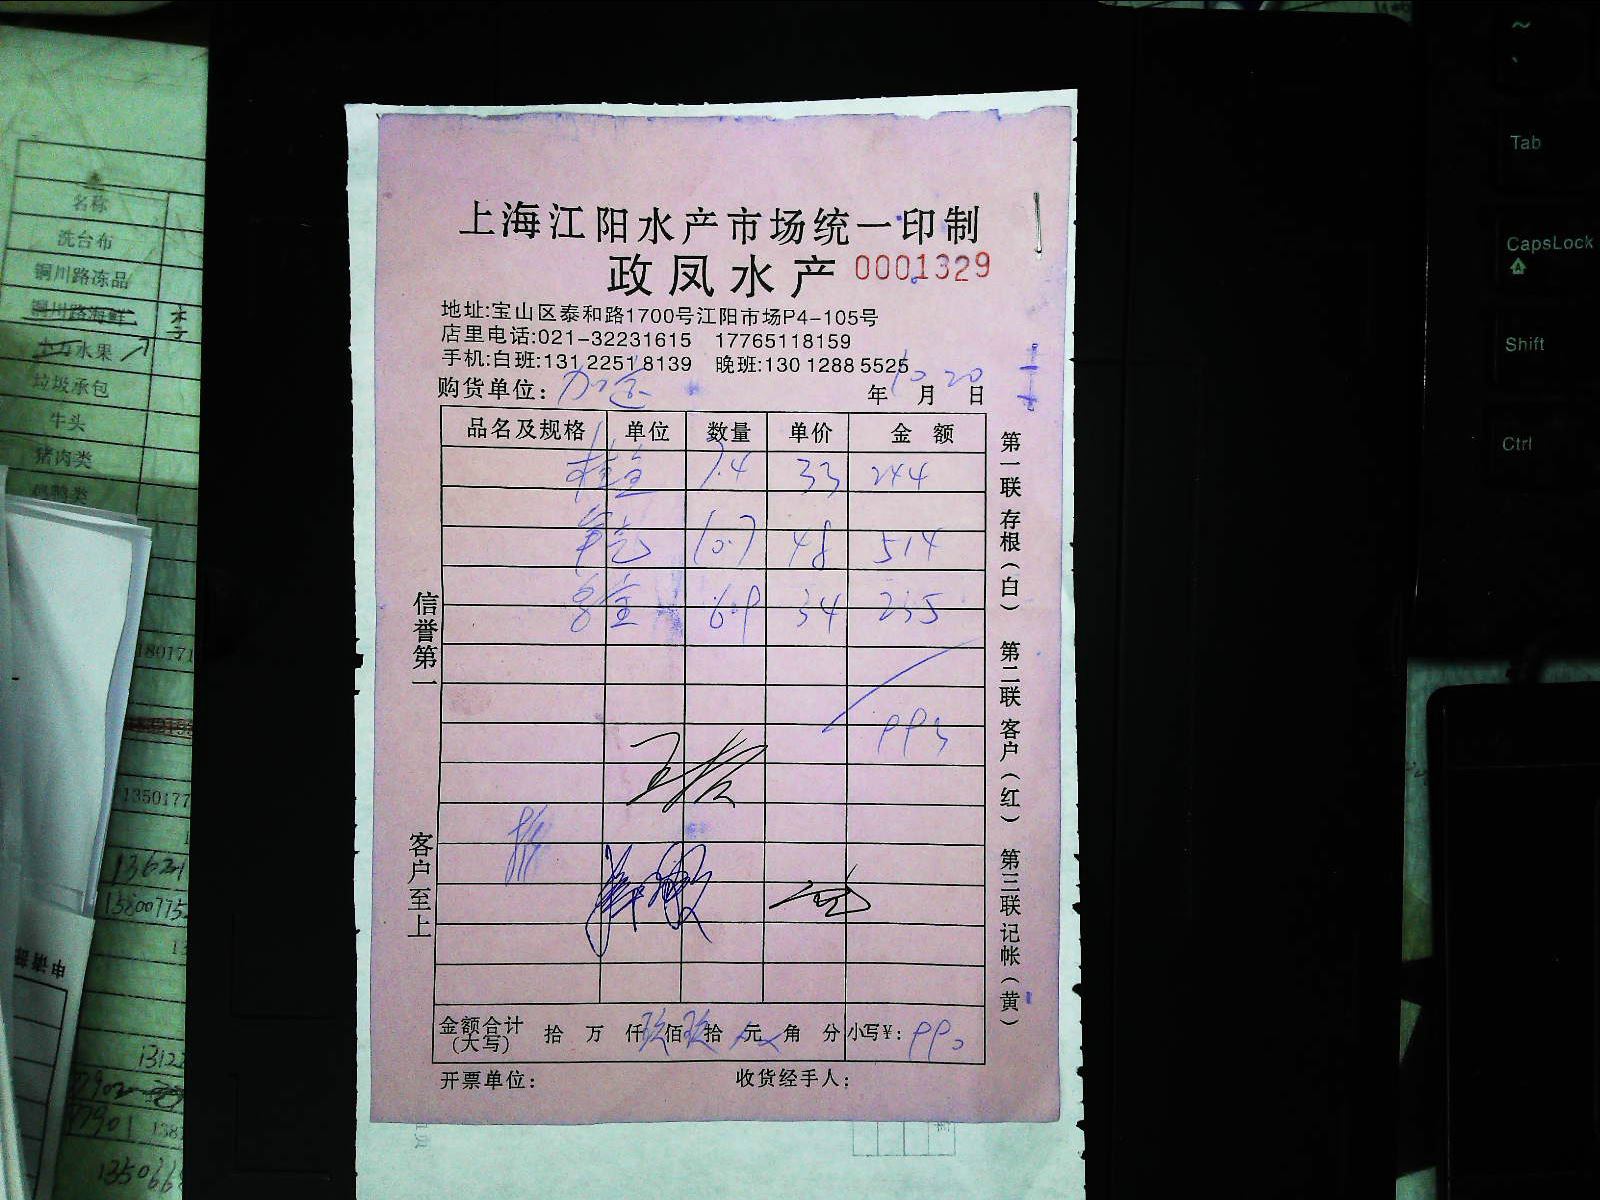 上海江阳水产市场统一印制
政凤水产 0001329
地址:宝山区泰和路1700号江阳市场P4-105号
店里电话:021-32231615 17765118159
手机:白班:131 2251 8139 晚班:130 1288 5525
购货单位: 年10月20日
品名及规格 单位 数量 单价 金额
7.4 33 244
10.7 48 514
6.9 34 235
993
信誉第一
客户至上
第一联存根(白) 第二联客户(红) 第三联记帐(黄)
金额合计(大写) 拾 万 仟玖佰玖拾 元 角 分 小写¥: 990
开票单位: 收货经手人:
名称
洗台布
铜川路冻品
铜川路海鲜
水果
垃圾承包
牛头
猪肉类
180171
1350177
136241
15800775
申请部
13122
77901
135066
~
Tab
CapsLock
Shift
Ctrl